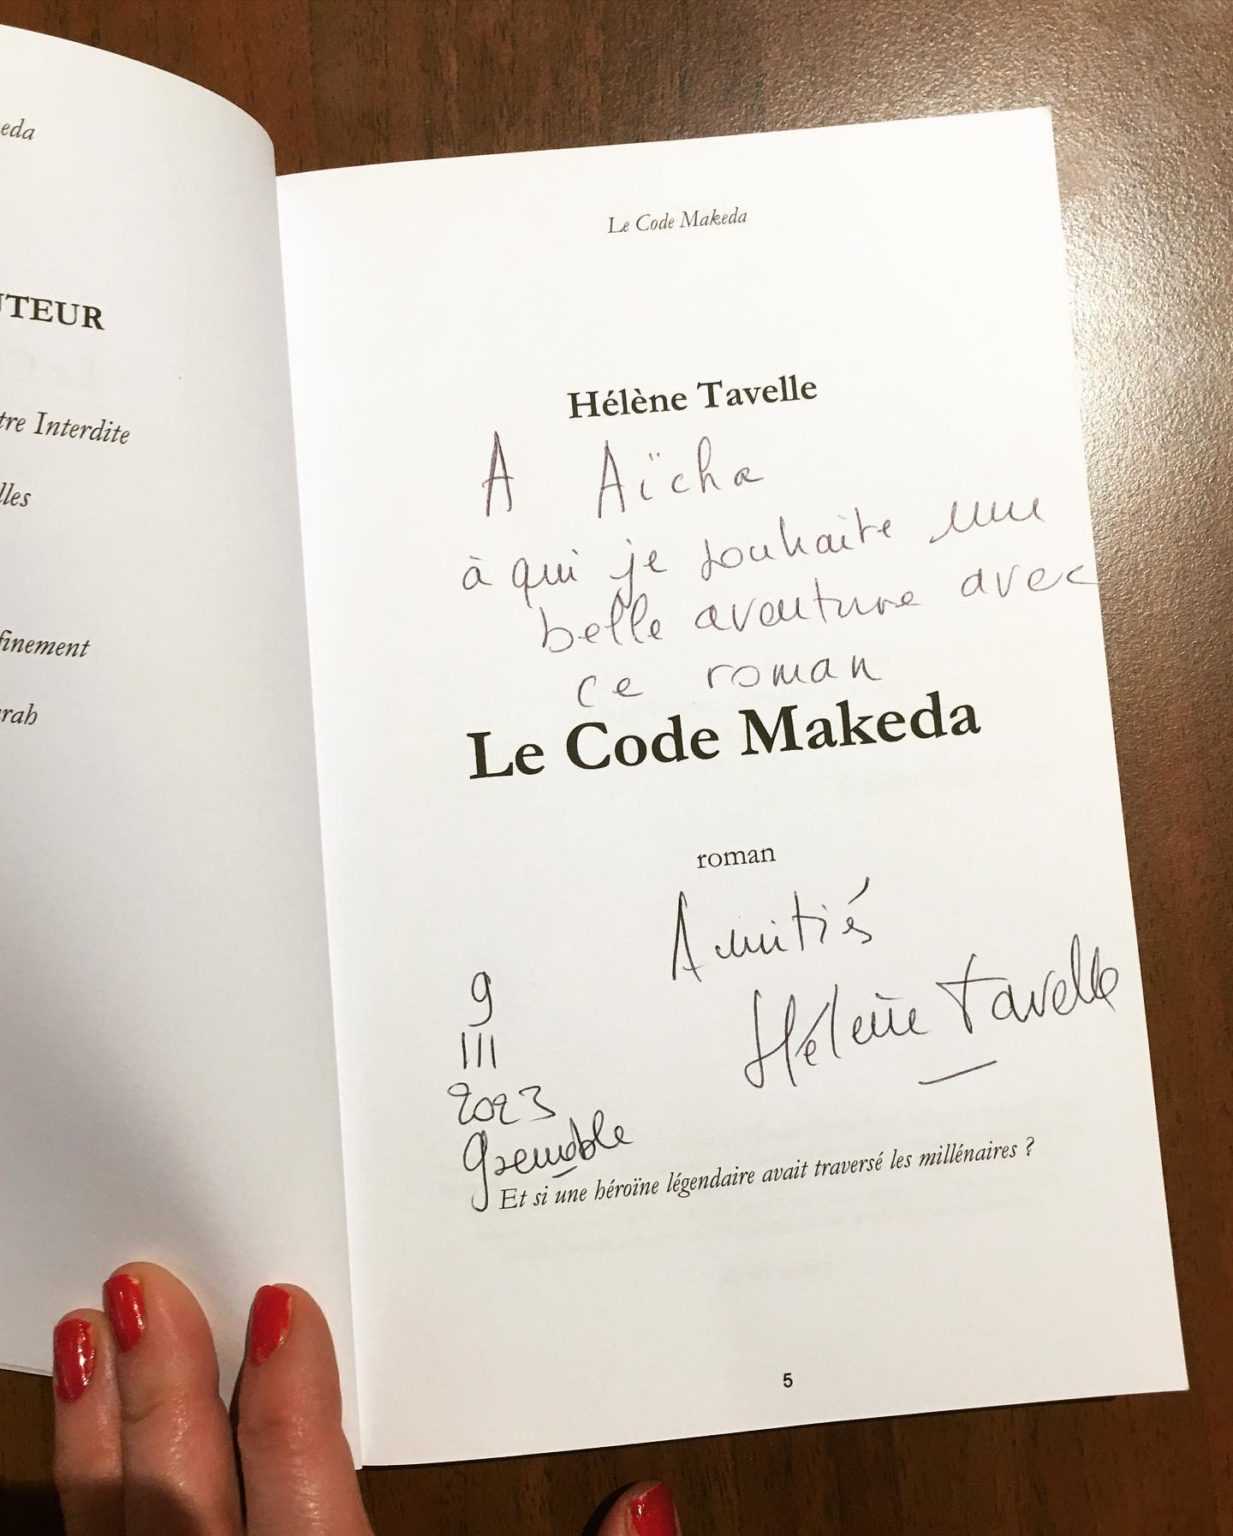 eda
UTEUR
tre Interdite
lles
finement
rah
Le Code Makeda
Hélène Tavelle
A Aïcha
à qui je souhaite une
belle aventure avec
ce roman
Le Code Makeda
roman
Amitiés
Hélène Tavelle
9
III
2023
Grenoble
Et si une héroïne légendaire avait traversé les millénaires ?
5